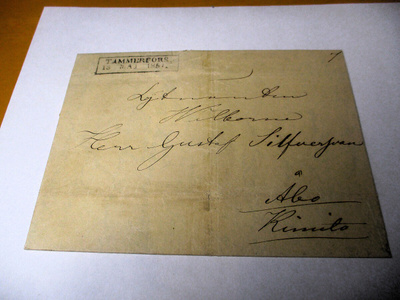 TAMMERFORS,
18 MAI 1861.
Lytnanten
Wälborne
Herr Gustaf Silfversvan
å
Åbo
Kimito